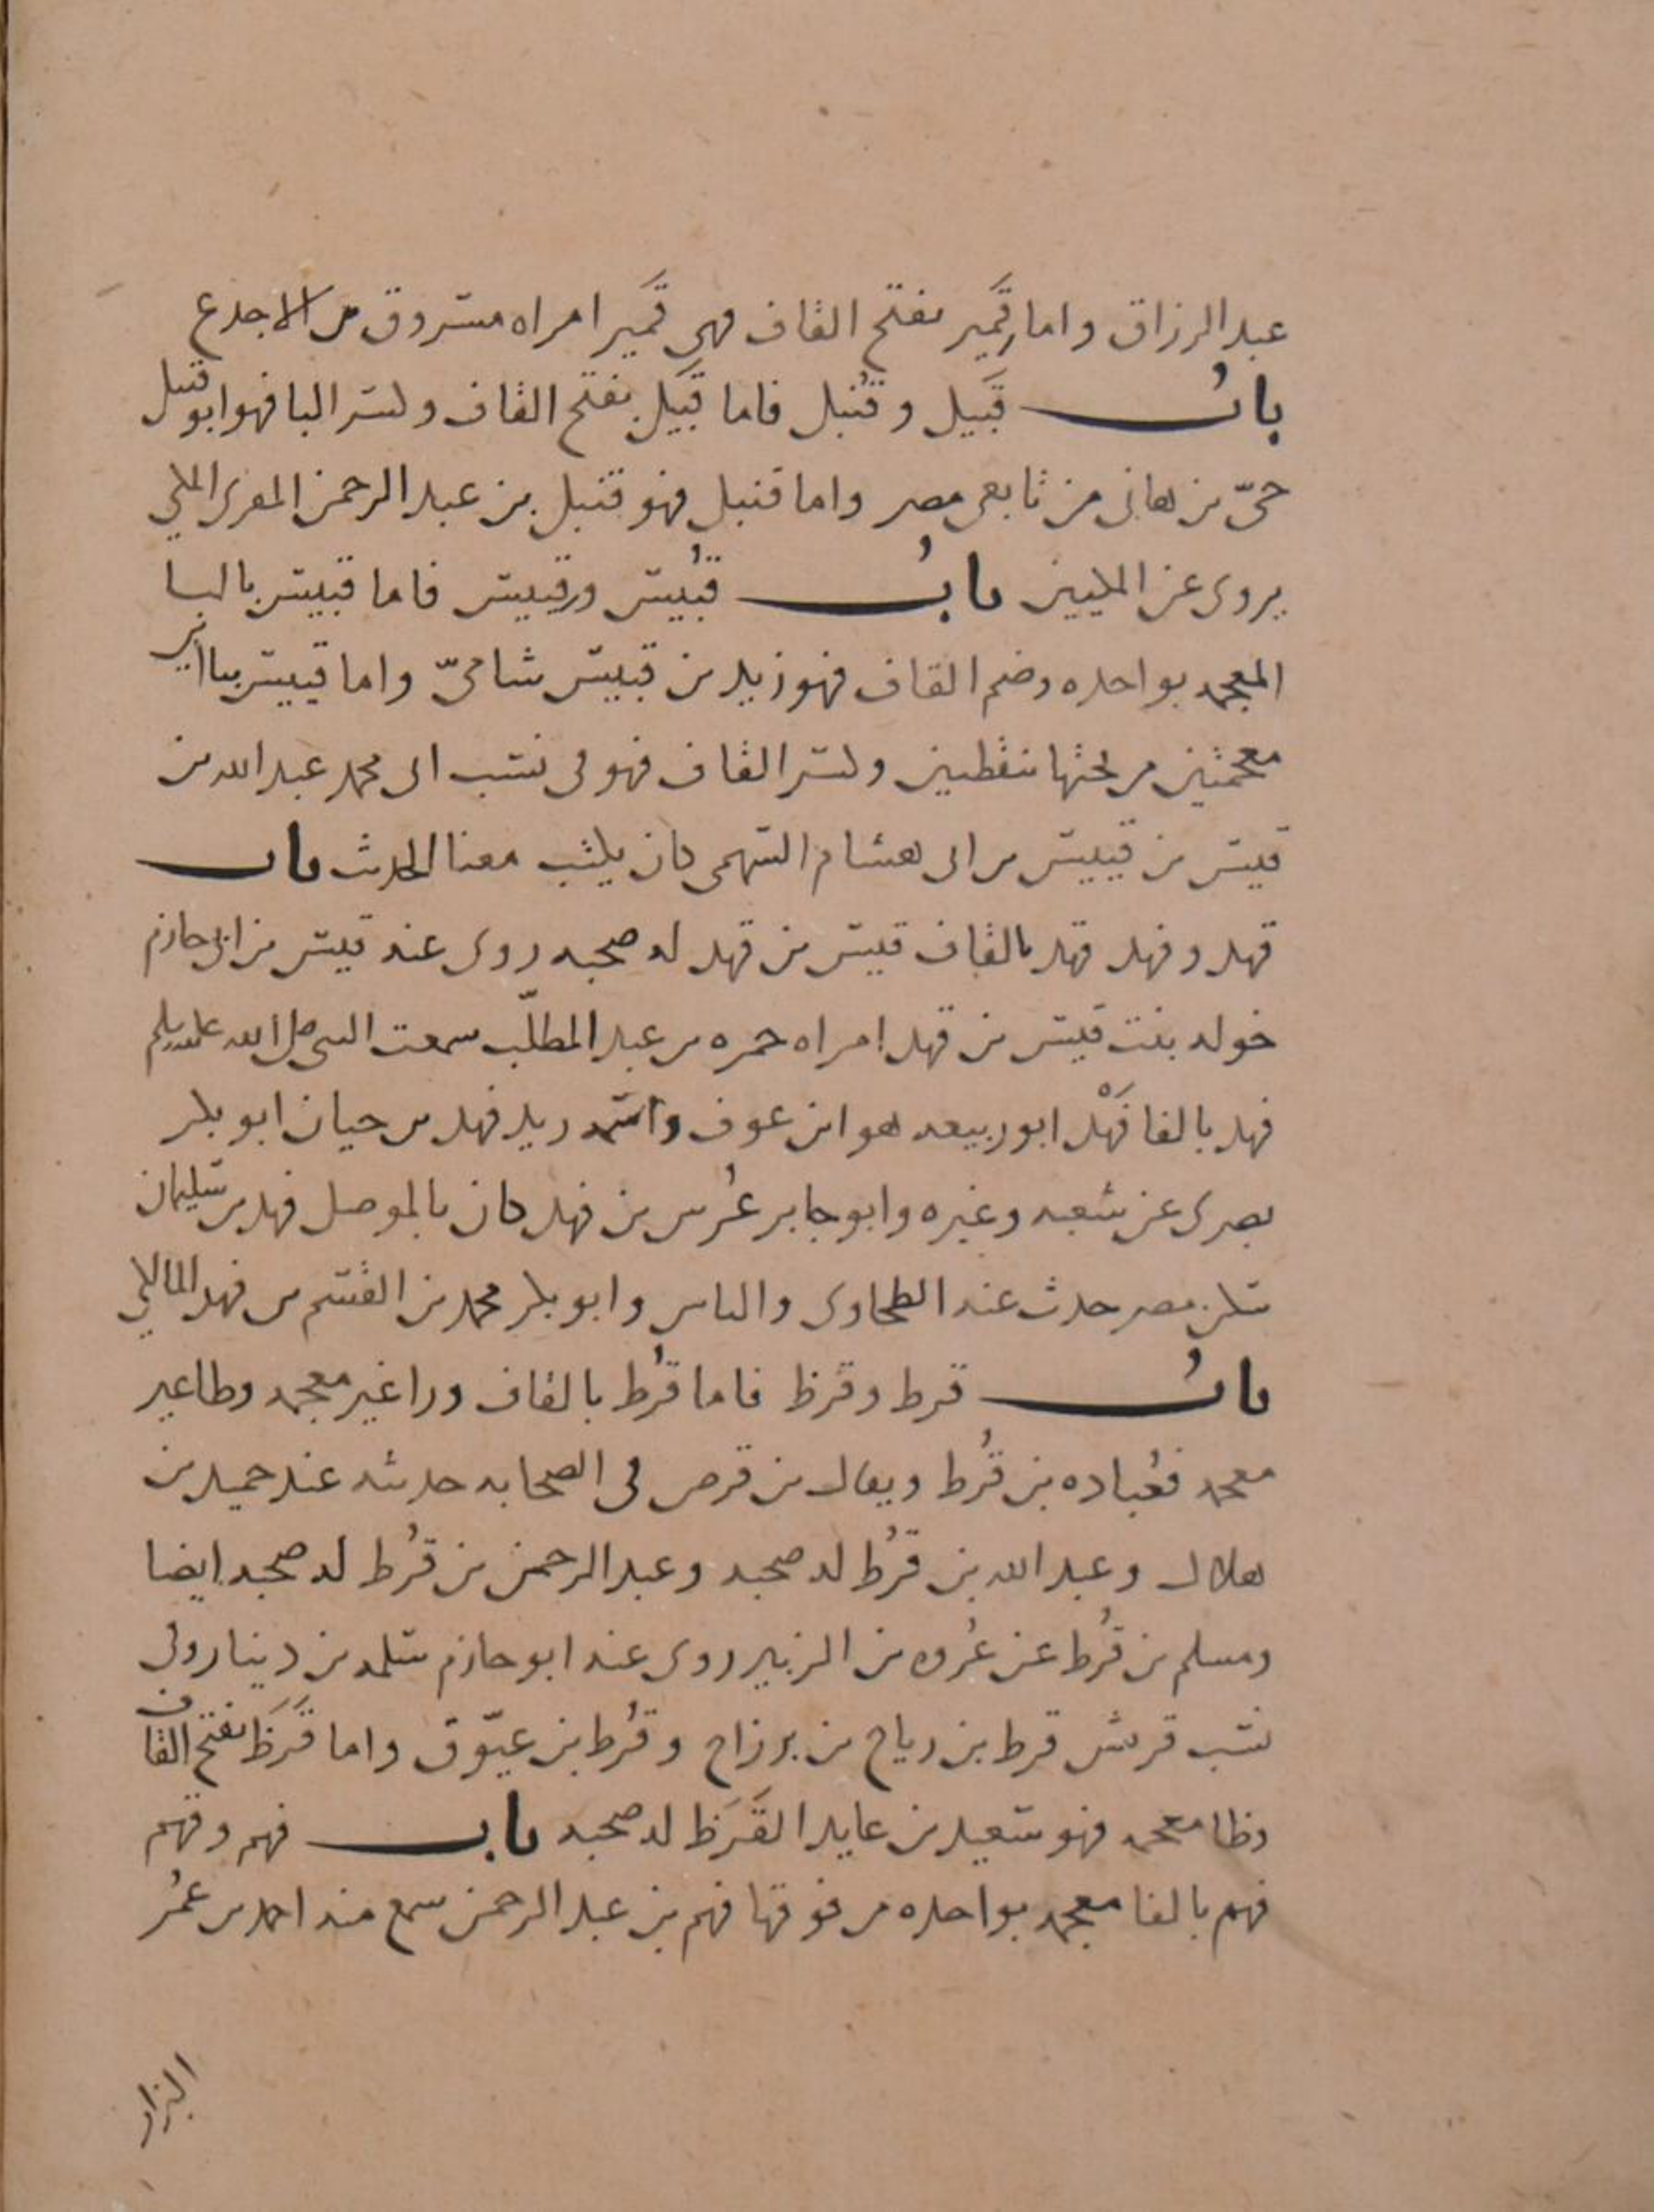 عبد الرزاق واما قَمير بفتح القاف فهي قَمير امراه مسروق بن الاجدع
بابُ قَبيل وقُنبل فاما قَبيل بفتح القاف وكسر البا فهو ابو قبيل
حيّ بن هانى من تابعى مصر واما قنبل فهو قنبل بن عبد الرحمن المقرى المكي
يروى عن المكيين بابُ قُبيس وقييس فاما قبيس بالبا
المعجمه بواحده وضم القاف فهو زيد بن قبيس شاميّ واما قييس بياأين
معجمتين من تحتها بنقطين وكسر القاف فهو في نسب ابى محمد عبد الله بن
قيس بن قييس بن ابى هشام السهمى كان يكتب معنا الحديث باب
قهد وفهد قهد بالقاف قيس بن قهد له صحبه روى عنه قيس بن ابى حازم
خوله بنت قيس بن قهد امراه حمزه بن عبد المطلّب سمعت النبي صلى الله عليه وسلم
فهد بالفا فَهْد ابو ربيعه هو ابن عوف واسمه زيد فهد بن حيان ابو بكر
بصرى عن شعبه وغيره وابو جابر عُرس بن فهد كان بالموصل فهد بن سليمان
سكن مصر حدث عنه الطحاوى والناس وابو بكر محمد بن القسم بن فهد المالكي
بابُ قرط وقرظ فاما قُرط بالقاف ورا غير معجمه وطا غير
معجمه فعُباده بن قُرط ويقال بن قرص في الصحابه حديثه عند حميد بن
هلال وعبد الله بن قُرط له صحبه وعبد الرحمن بن قُرط له صحبه ايضا
ومسلم بن قُرط عن عُروه بن الزبير روى عنه ابو حازم سلمه بن دينار وفي
نسب قريش قرط بن رياح بن برزاح وقُرط بن عيّوق واما قَرَظ بفتح القاف
وظا معجمه فهو سعيد بن عايد القَرَظ له صحبه باب فهم وقهم
فهم بالفا معجمه بواحده من فوقها فهم بن عبد الرحمن سمع منه احمد بن عمُر
البزار